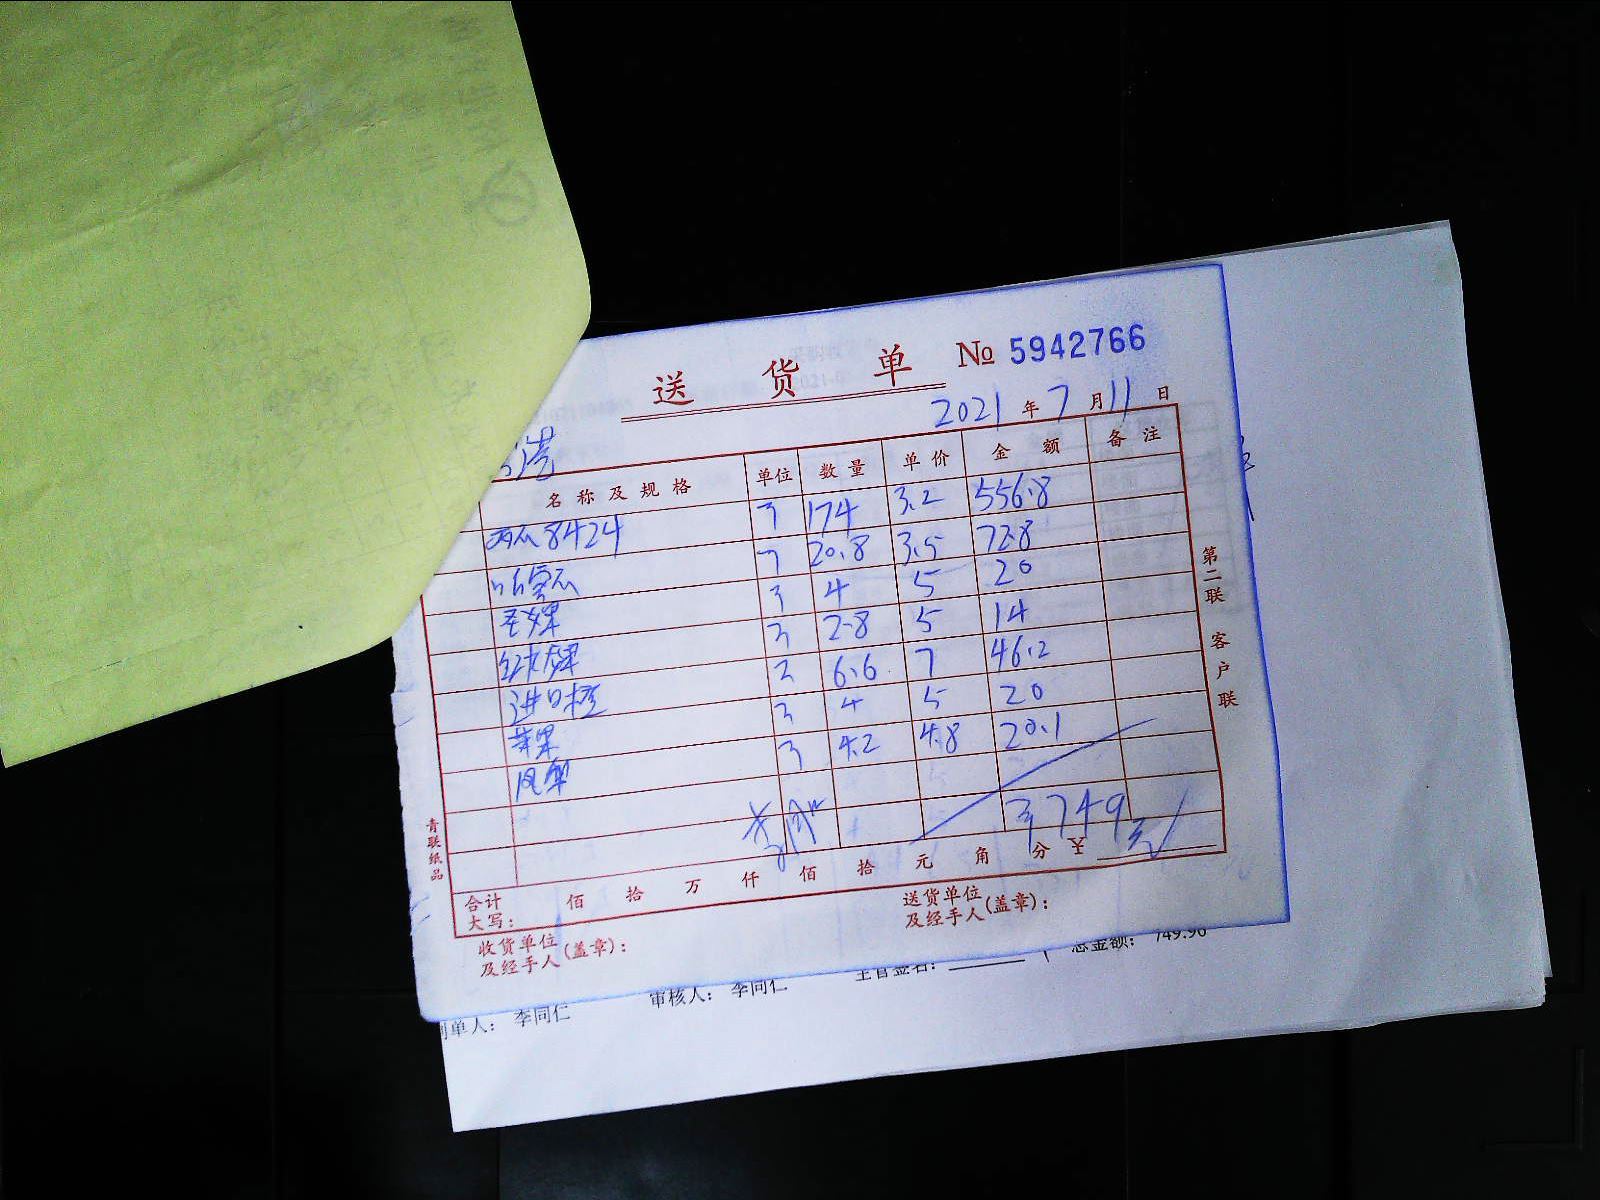 送货单 № 5942766
2021 年 7 月 11 日
名称及规格 单位 数量 单价 金额 备注
西瓜8424 174 3.2 556.8
20.8 3.5 72.8
圣女果 4 5 20
2.8 5 14
进口橙 6.6 7 46.2
苹果 4 5 20
凤梨 4.2 4.8 20.1
749元
合计大写： 佰 拾 万 仟 佰 拾 元 角 分 ¥
收货单位及经手人(盖章)：
送货单位及经手人(盖章)：
第二联 客户联
青联纸品
制单人： 李同仁 审核人： 李同仁 主管签名： 总金额： 749.90